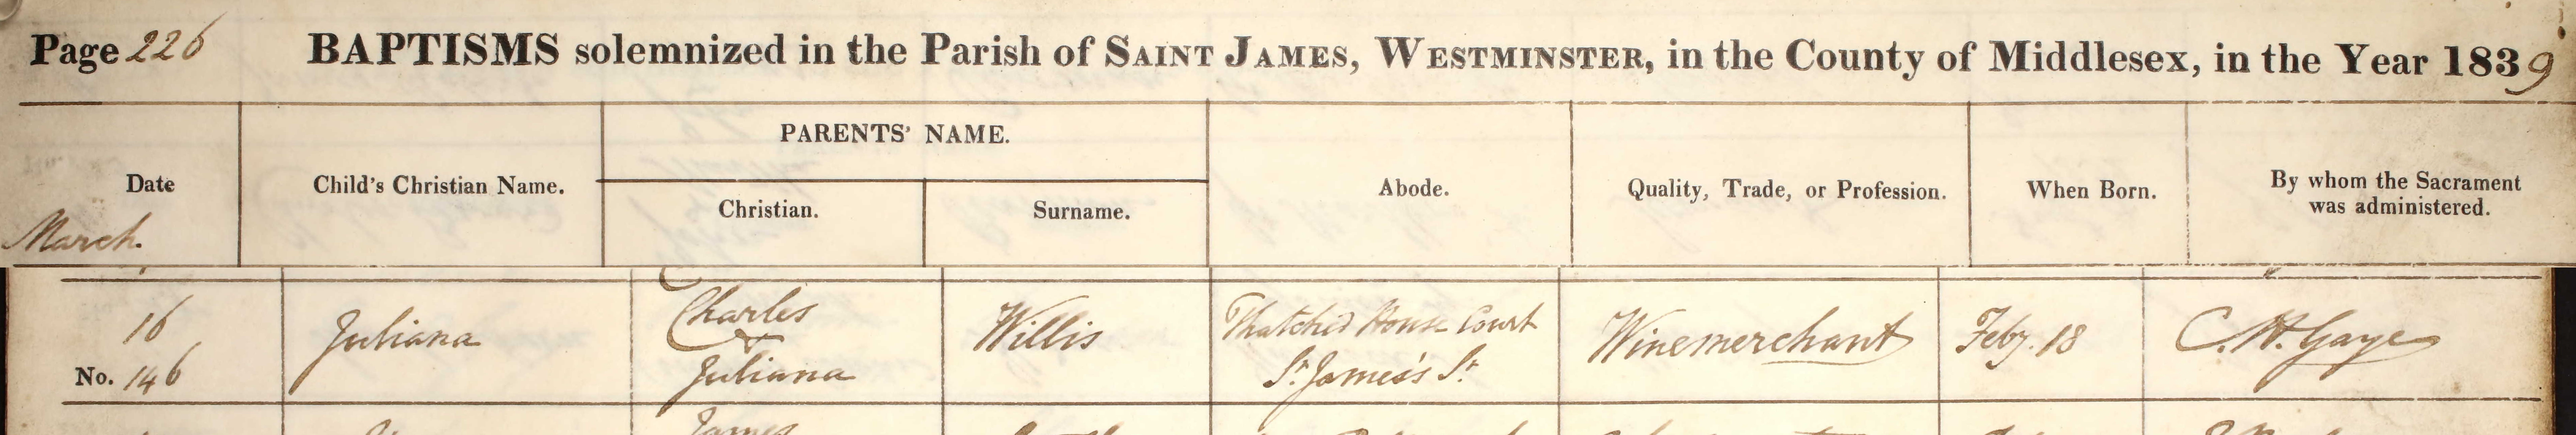 Page 226 BAPTISMS solemnized in the Parish of SAINT JAMES, WESTMINSTER, in the County of Middlesex, in the Year 1839
PARENTS' NAME.
Date Child's Christian Name. Abode. Quality, Trade, or Profession. When Born. By whom the Sacrament
was administered.
Christian. Surname.
March.
16 Juliana Charles Willis Thatched House Court Winemerchant Feby. 18 C. H. Gaye
&
No. 146 Juliana St. James's St.
James